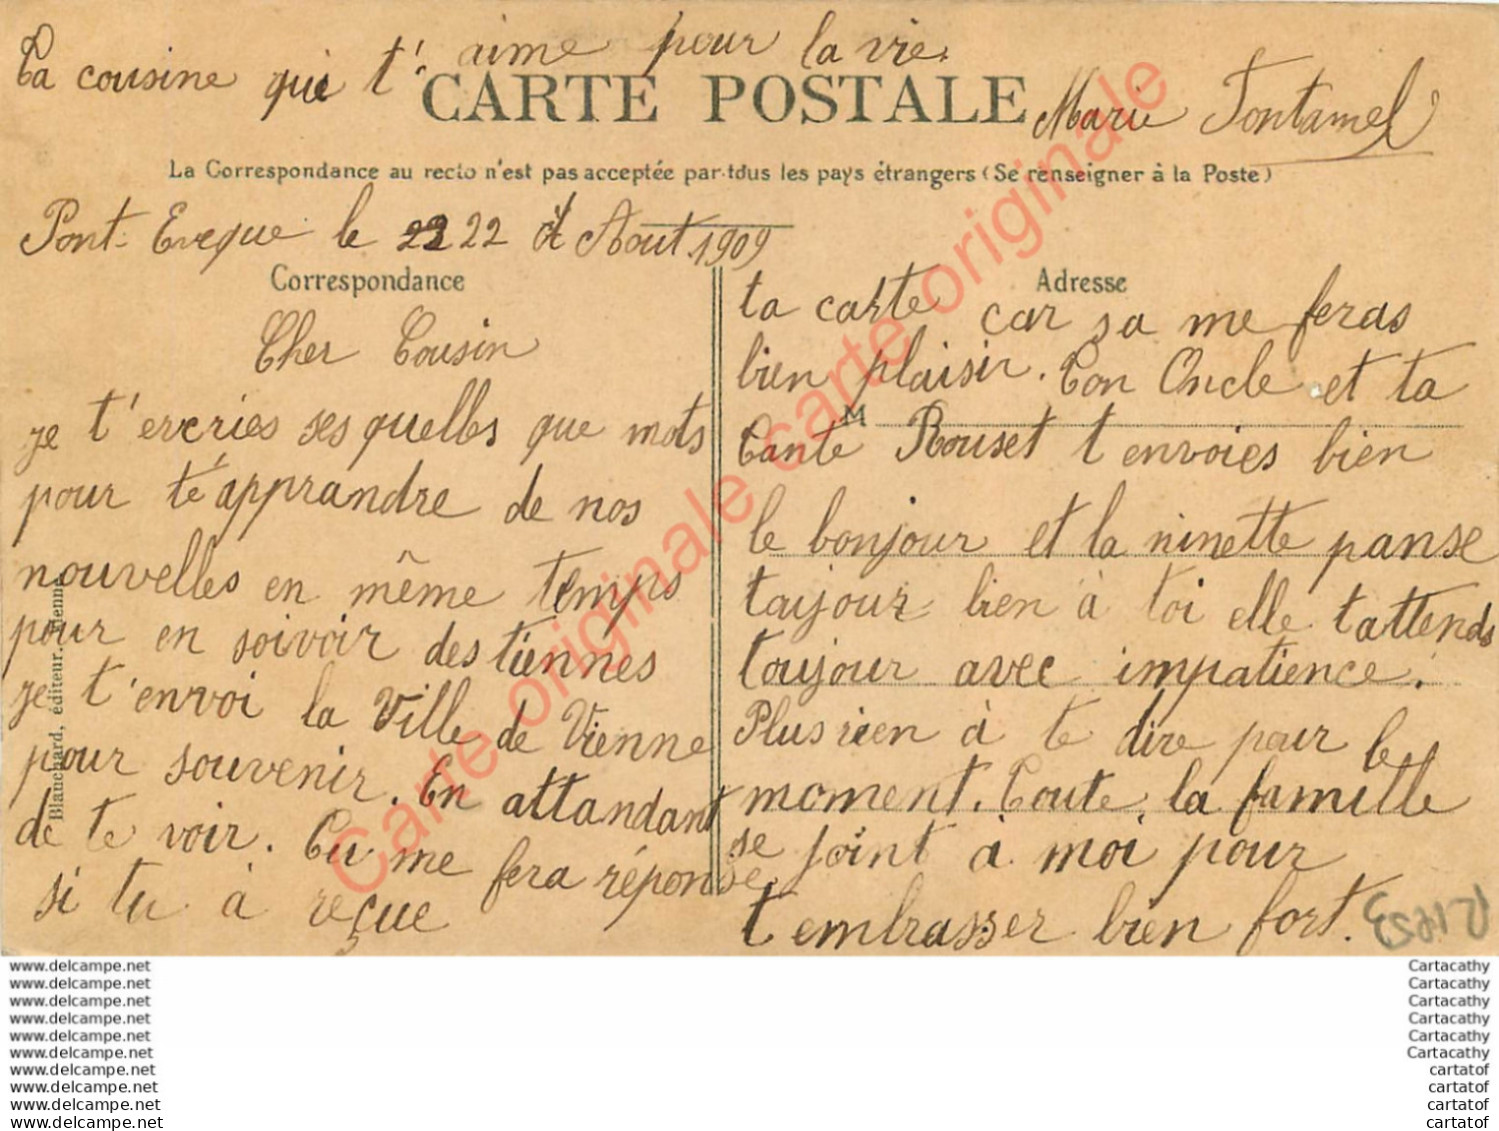 Ta cousine qui t'aime pour la vie.
CARTE POSTALE
Marie Fontamel
La Correspondance au recto n'est pas acceptée par tous les pays étrangers (Se renseigner à la Poste)
Pont-Eveque le 22 22 Aout 1909
Correspondance
Cher Cousin
je t'ercries ses quelles que mots
pour té apprandre de nos
nouvelles en même temps
pour en soivoir des tiennes
je t'envoi la Ville de Vienne
pour souvenir. En attandant
de te voir. Tu me fera réponse
si tu à reçue
Adresse
ta carte car sa me feras
bien plaisir. Ton Oncle et ta
M
Tante Rouset t envoies bien
le bonjour et la ninette panse
taujour bien à toi elle t attends
toujour avec impatience.
Plus rien à te dire pour le
moment. Toute la famille
se joint à moi pour
t embrasser bien fort.
R1453
Blanchard, éditeur, Vienne
Carte originale carte originale carte originale
www.delcampe.net
www.delcampe.net
www.delcampe.net
www.delcampe.net
www.delcampe.net
www.delcampe.net
www.delcampe.net
www.delcampe.net
www.delcampe.net
www.delcampe.net
Cartacathy
Cartacathy
Cartacathy
Cartacathy
Cartacathy
Cartacathy
cartatof
cartatof
cartatof
cartatof